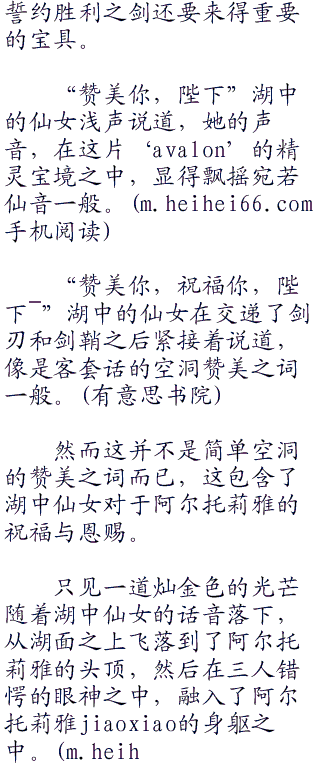 誓约胜利之剑还要来得重要
的宝具。
“赞美你，陛下”湖中
的仙女浅声说道，她的声
音，在这片‘avalon’的精
灵宝境之中，显得飘摇宛若
仙音一般。(m.heihei66.com
手机阅读)
“赞美你，祝福你，陛
下~”湖中的仙女在交递了剑
刃和剑鞘之后紧接着说道，
像是客套话的空洞赞美之词
一般。(有意思书院)
然而这并不是简单空洞
的赞美之词而已，这包含了
湖中仙女对于阿尔托莉雅的
祝福与恩赐。
只见一道灿金色的光芒
随着湖中仙女的话音落下，
从湖面之上飞落到了阿尔托
莉雅的头顶，然后在三人错
愕的眼神之中，融入了阿尔
托莉雅jiaoxiao的身躯之
中。(m.heih